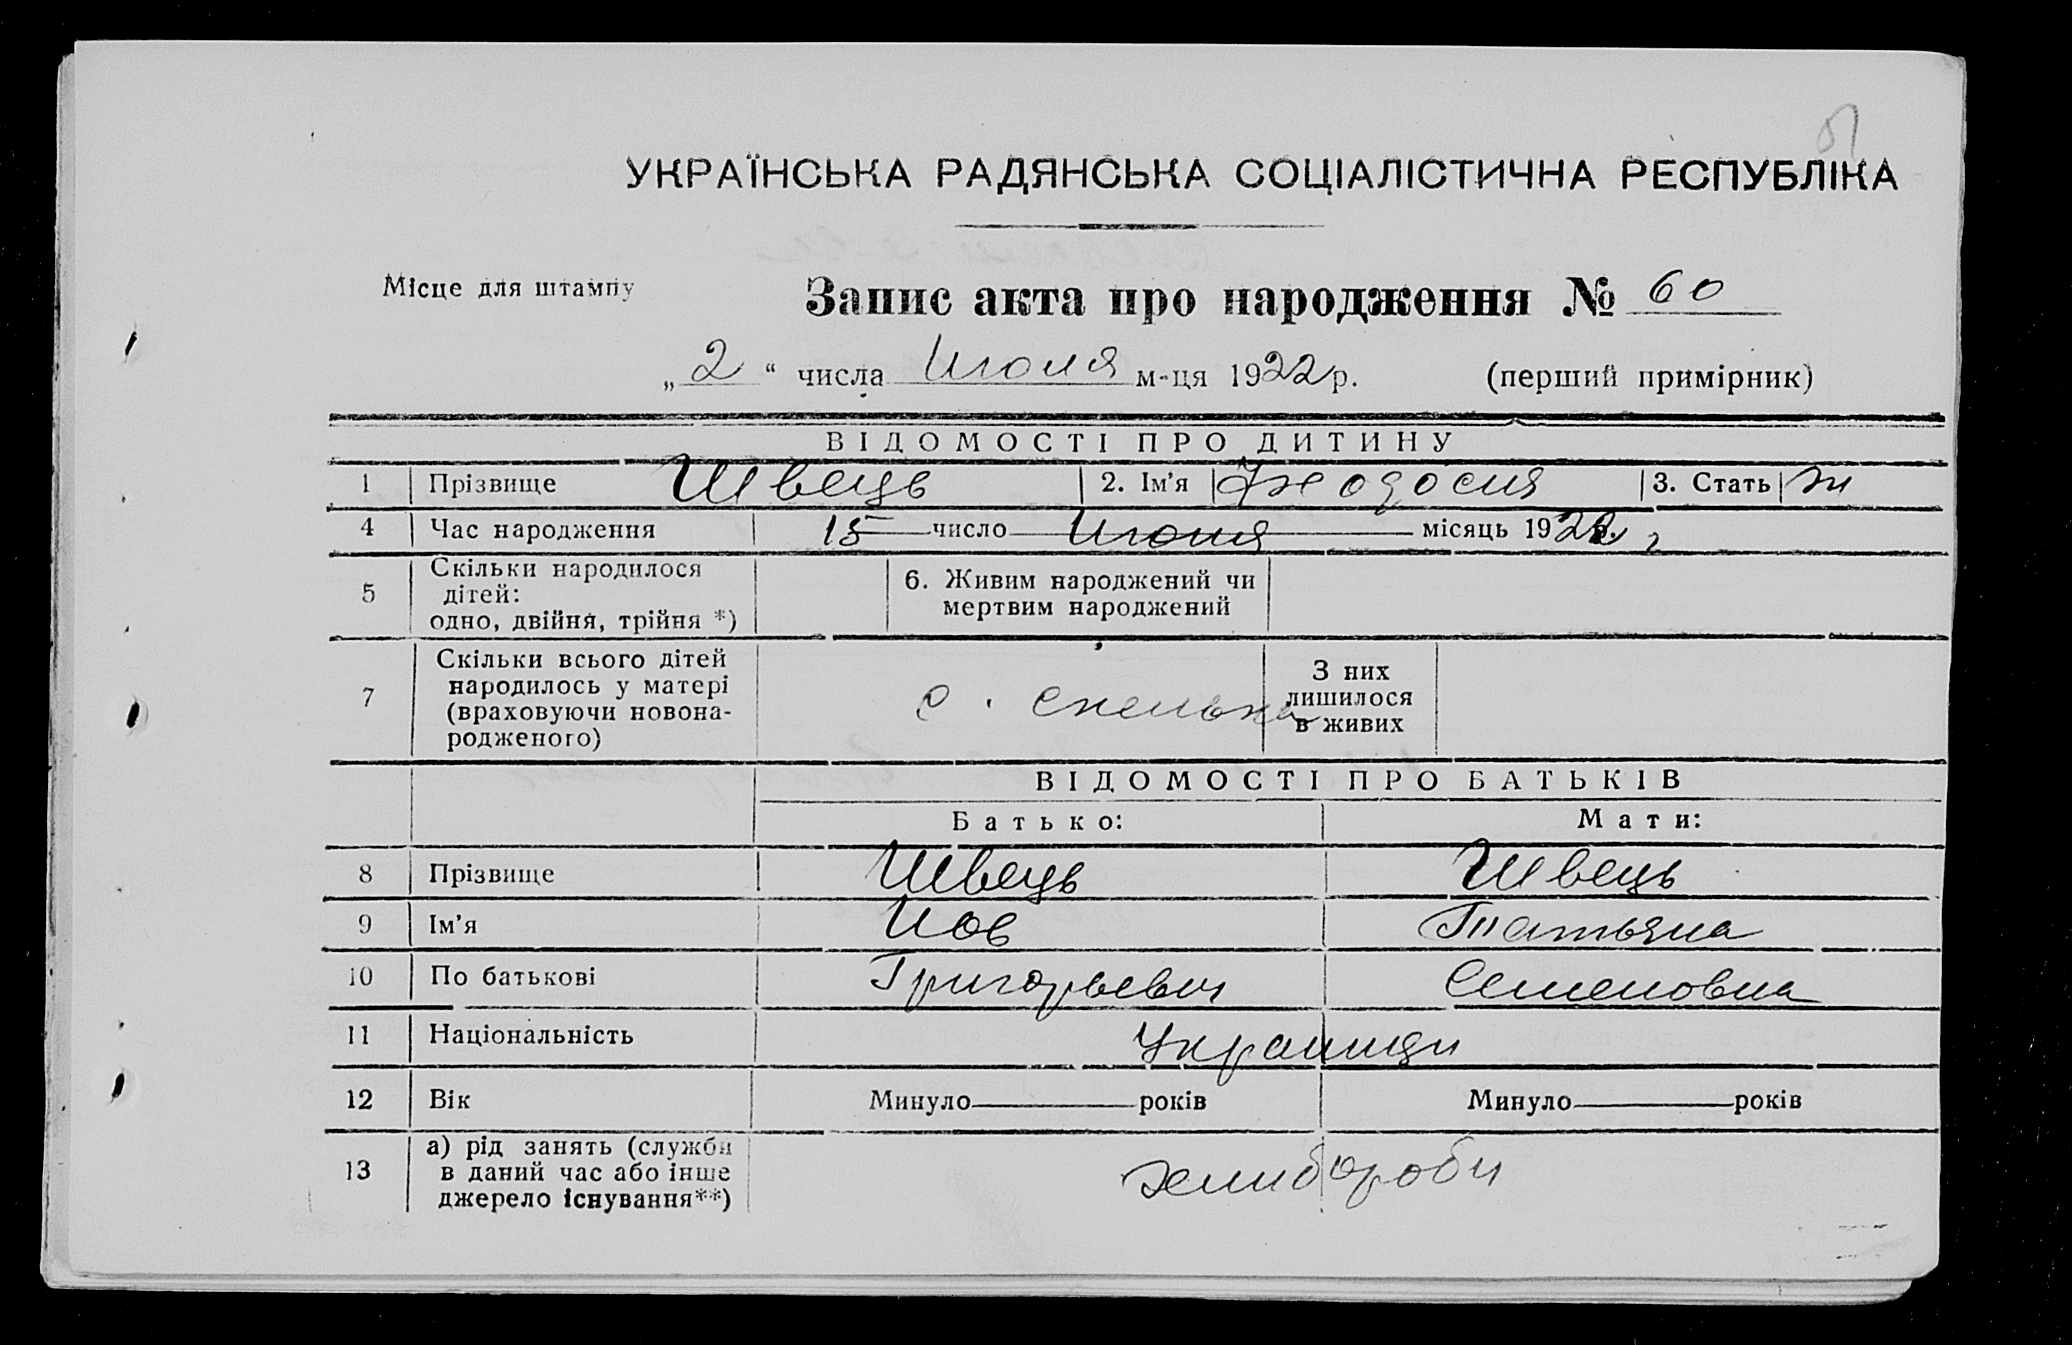 УКРАЇНСЬКА РАДЯНСЬКА СОЦІАЛІСТИЧНА РЕСПУБЛІКА
Місце для штампу
Запис акта про народження № 60
„2“ числа Июля м-ця 1922 р. (перший примірник)
ВІДОМОСТІ ПРО ДИТИНУ
1 Прізвище Швець 2. Ім’я Феодосия 3. Стать ж
4 Час народження 15 число Июня місяць 1922 г
5 Скільки народилося дітей: одно, двійня, трійня *)
6. Живим народжений чи мертвим народжений
7 Скільки всього дітей народилось у матері (враховуючи новонародженого) с.
З них лишилося в живих
ВІДОМОСТІ ПРО БАТЬКІВ
Батько: Мати:
8 Прізвище Швець Швець
9 Ім’я Иов Татьяна
10 По батькові Григорьевич Семеновна
11 Національність Украинци
12 Вік Минуло років Минуло років
13 а) рід занять (служби в даний час або інше джерело існування**) хлибороби